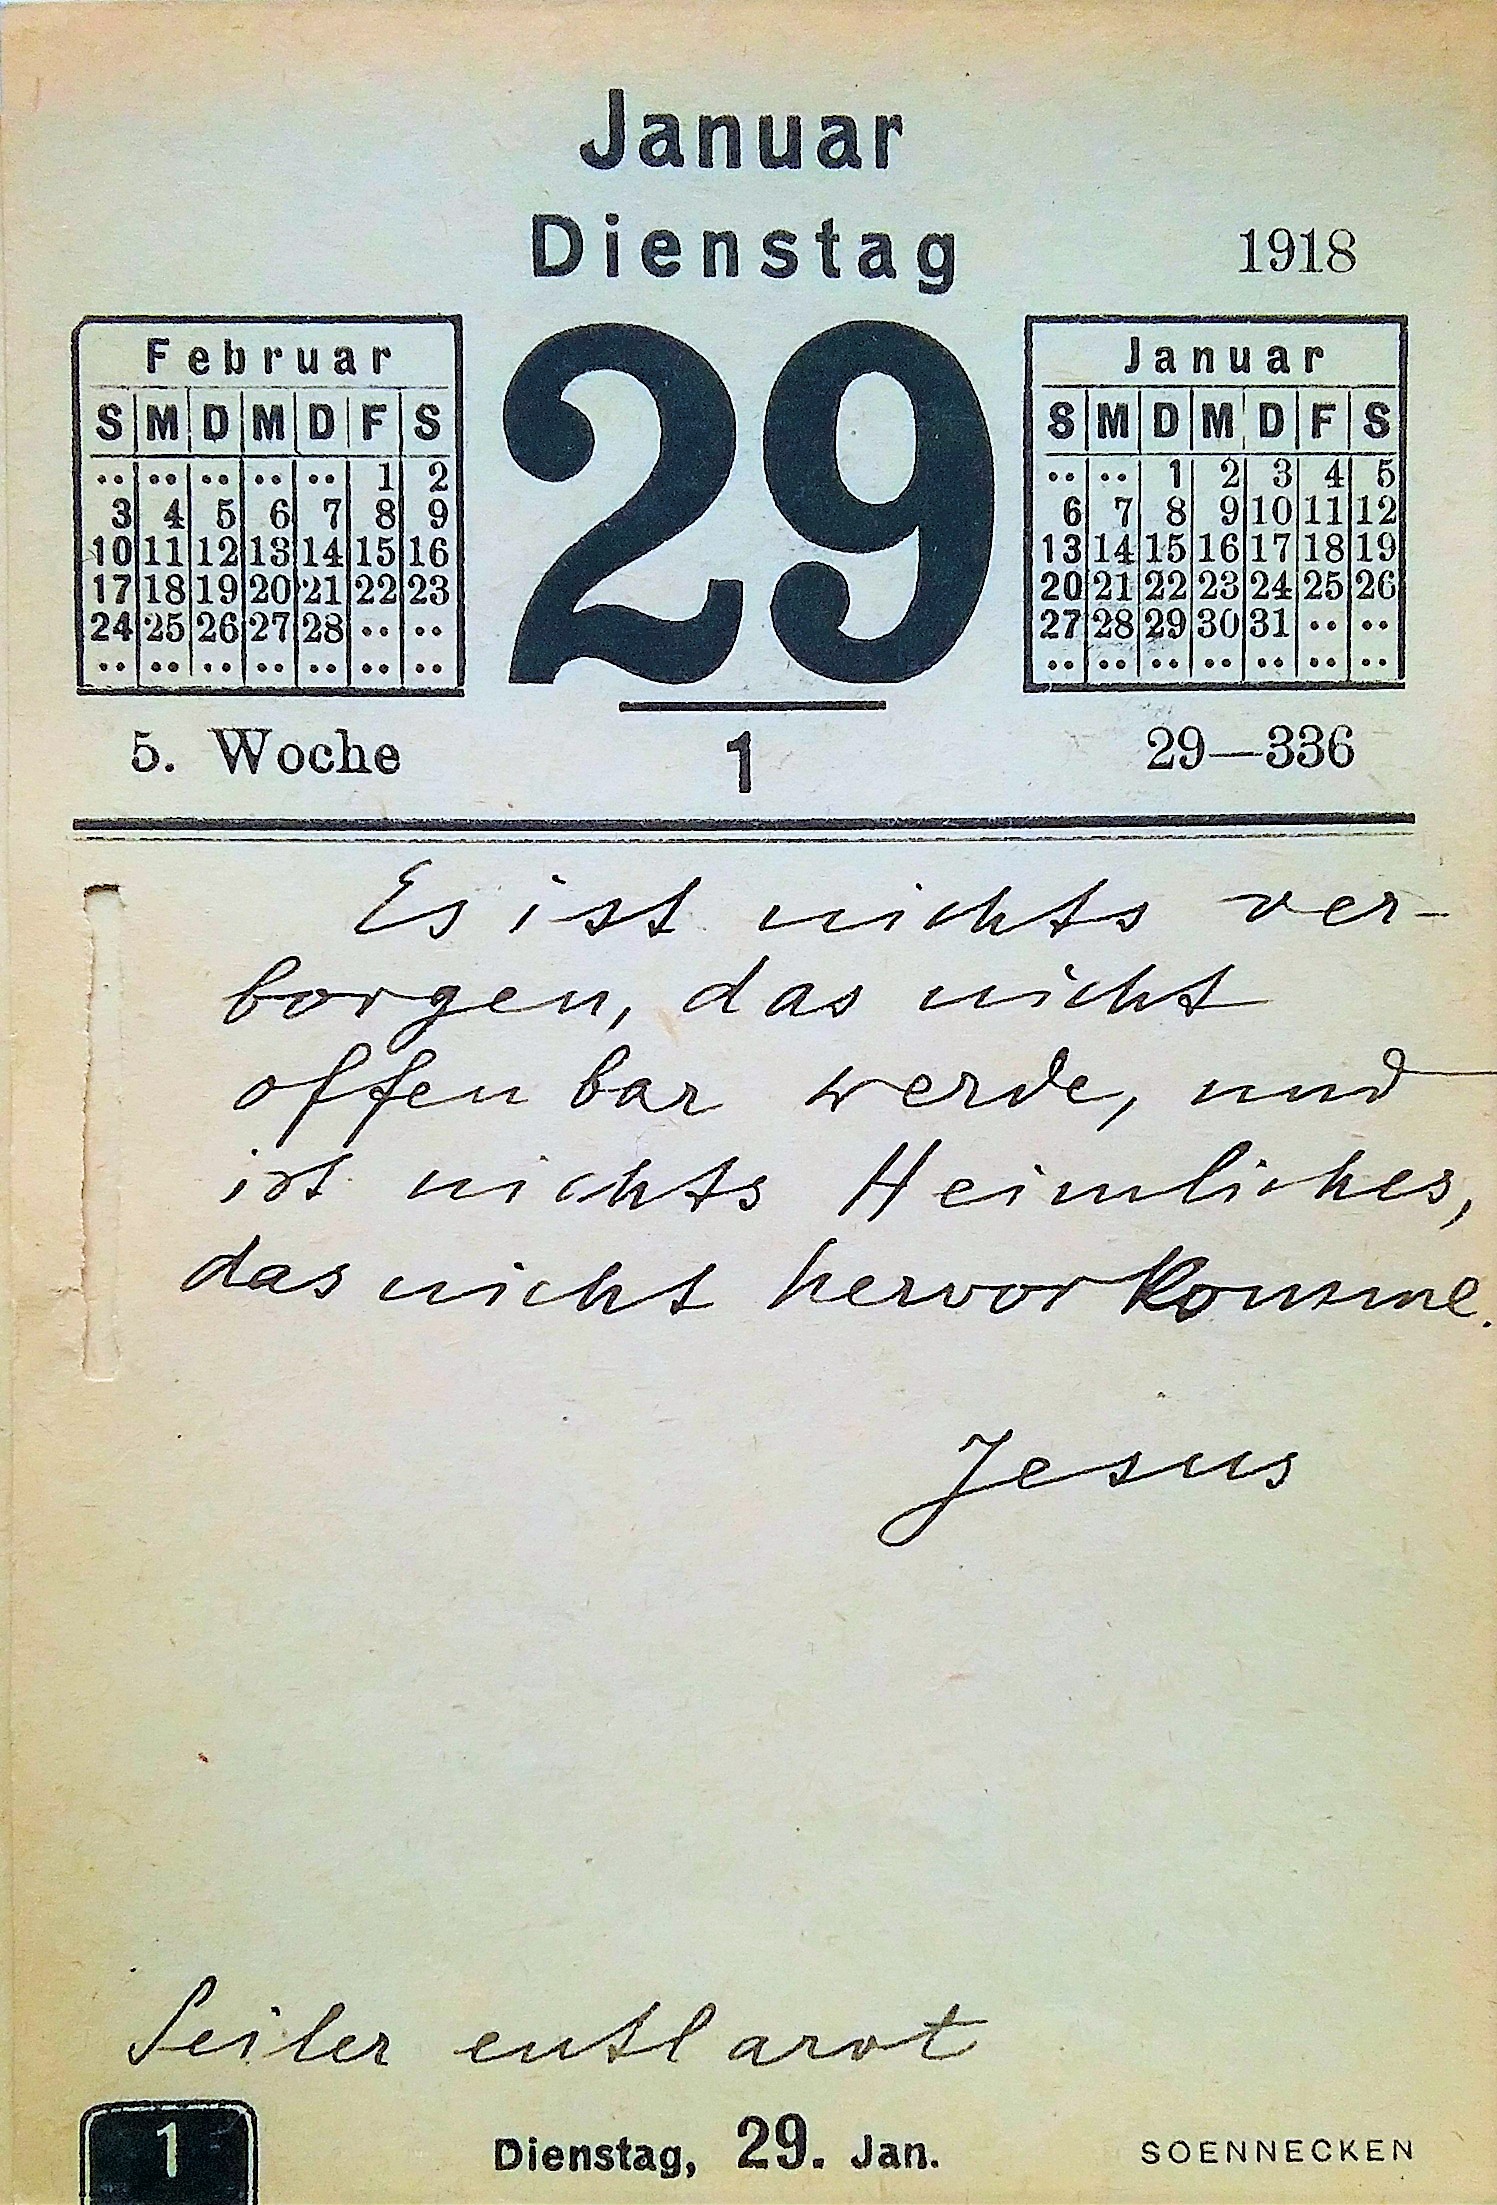 Januar
Dienstag
1918
Februar
S M D M D F S
.. .. .. .. .. 1 2
3 4 5 6 7 8 9
10 11 12 13 14 15 16
17 18 19 20 21 22 23
24 25 26 27 28 .. ..
.. .. .. .. .. .. ..
29
Januar
S M D M D F S
.. .. 1 2 3 4 5
6 7 8 9 10 11 12
13 14 15 16 17 18 19
20 21 22 23 24 25 26
27 28 29 30 31 .. ..
.. .. .. .. .. .. ..
5. Woche
1
29—336
Es ist nichts ver-
borgen, das nicht
offenbar werde, und
ist nichts Heimliches,
das nicht hervorkomme.
Jesus
Seiler entlarvt
1
Dienstag, 29. Jan.
SOENNECKEN